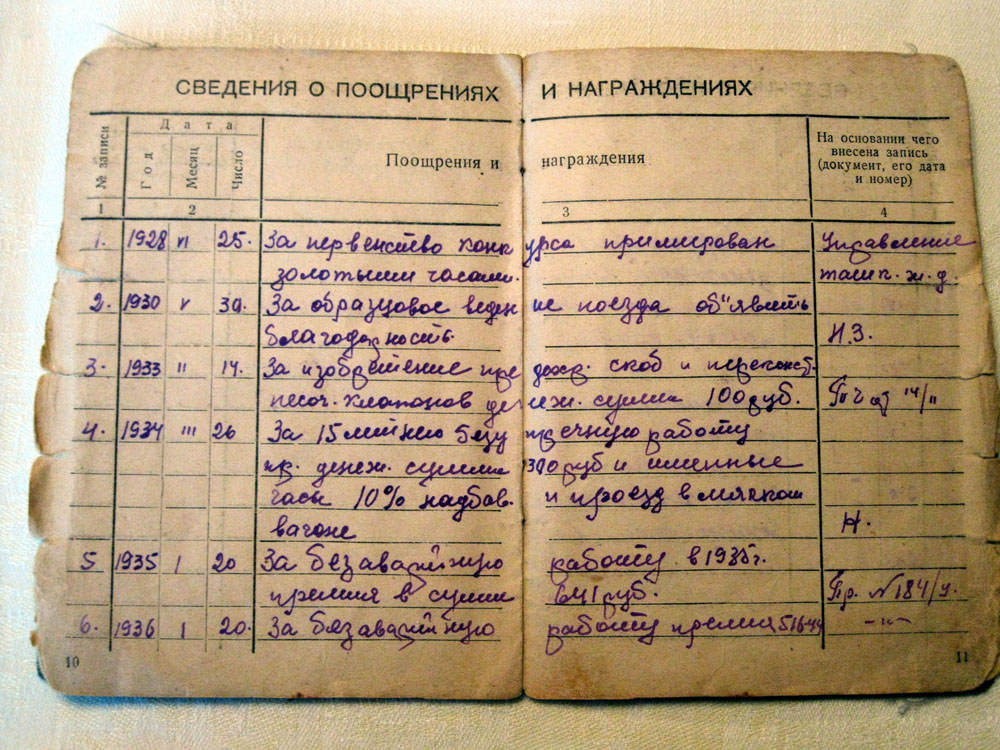 СВЕДЕНИЯ О ПООЩРЕНИЯХ И НАГРАЖДЕНИЯХ
№ записи
Дата
Год
Месяц
Число
Поощрения и награждения
На основании чего
внесена запись
(документ, его дата
и номер)
1 2 3 4
1. 1928 VI 25. За первенство конкурса примирован Управление
золотыми часами. ташк. ж. д.
2. 1930 V 30. За образцовое ведение поезда об"явить
благодарность. Н.З.
3. 1933 II 14. За изобретение предохр. скоб и переконст.
песоч. клапонов денеж. сумма 100 руб. 14/II
4. 1934 III 26 За 15 летнюю безупречную работу
пр. денеж. сумма 300 руб и именные
часы 10% надбав. и проезд в мягком
вагоне Н.
5 1935 I 20 За безаварийную работу в 1935г.
премия в сумме 641 руб. Пр. №184/у.
6. 1936 I 20. За безаварийную работу премия -"-
10
11